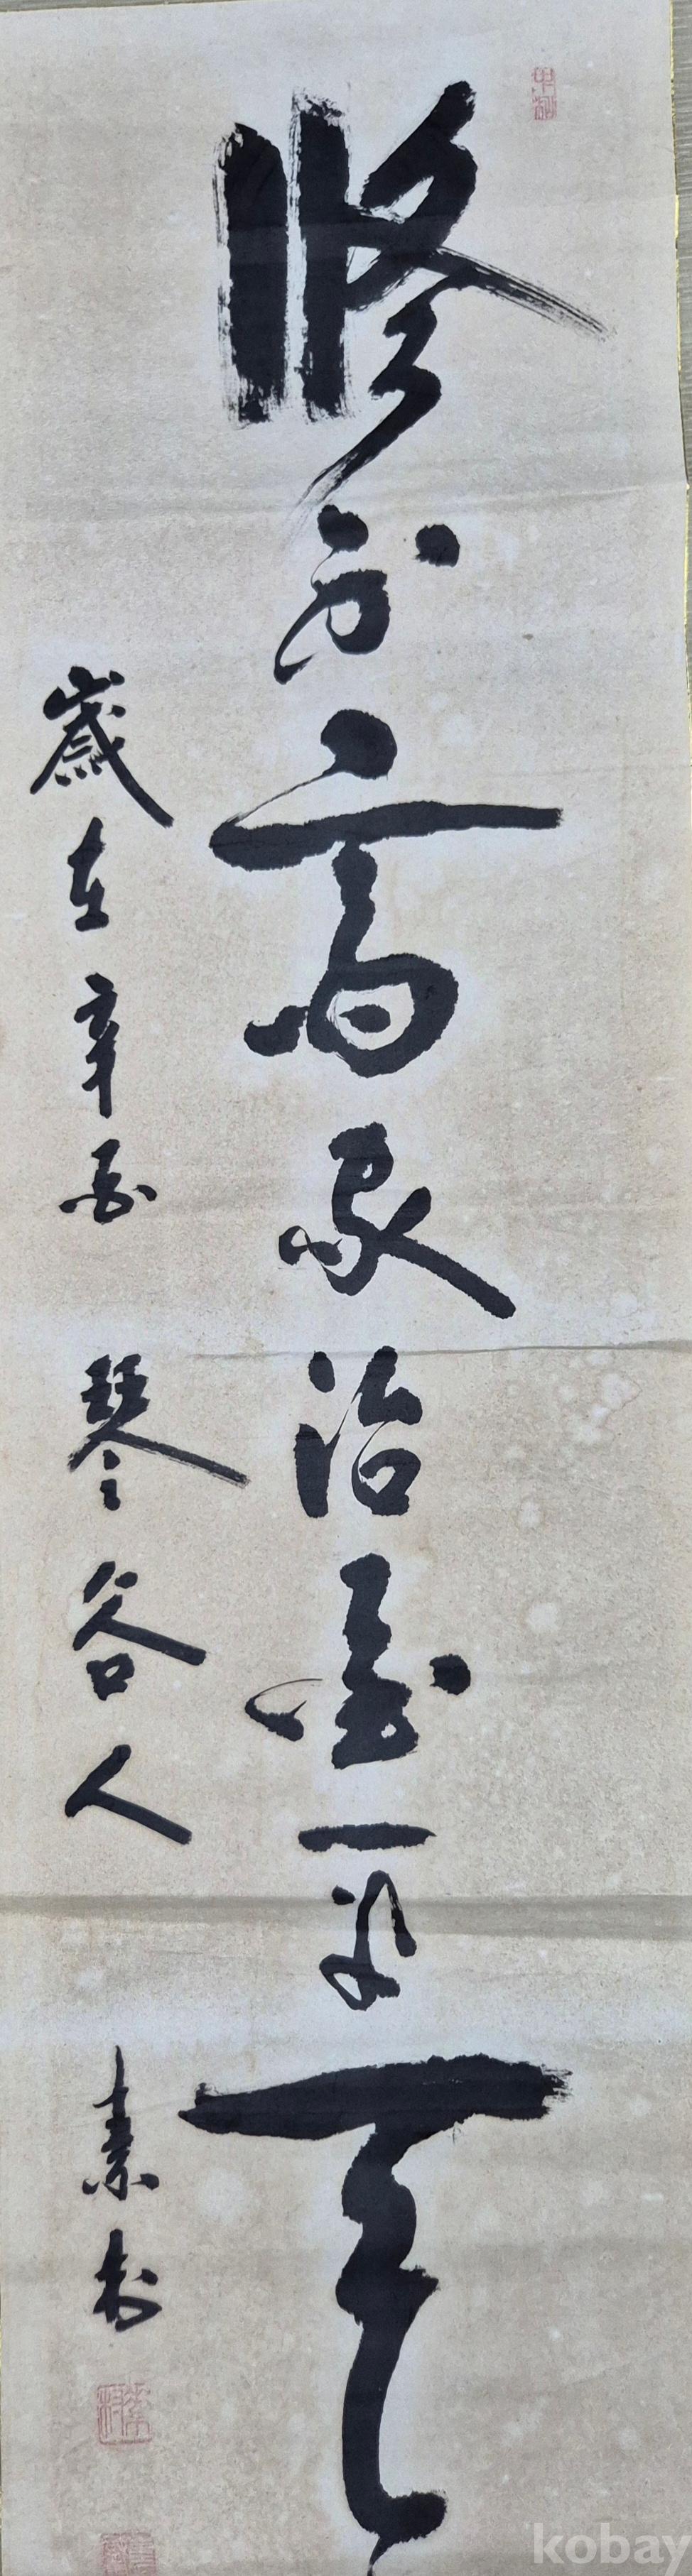 修身齊家治國平天
歲在辛酉 琴谷人 素村
kobay